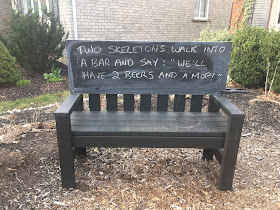 TWO SKELETONS WALK INTO
A BAR AND SAY: "WE'LL
HAVE 2 BEERS AND A MOP!"